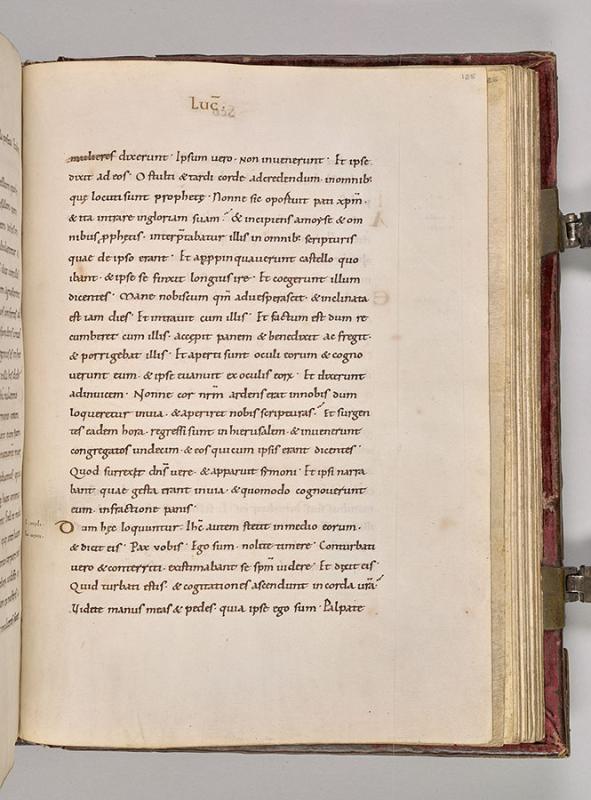 125
Luc̄.
mulieres dixerunt · Ipsum vero · non invenerunt · Et ipse
dixit ad eos · O stulti & tardi corde adcredendum inomnib;
quę locuti sunt prophetę · Nonne sic oportuit pati xp̄m ·
& ita intrare ingloriam suam · & incipiens amoyse & om
nibus p̱phetis · interp̄tabatur illis in omnib; scripturis
quae de ipso erant · Et appropinquaverunt castello quo
ibant · & ipse se finxit longius ire · Et coegerunt illum
dicentes · Mane nobiscum qm̄ advesperascit · & inclinata
est iam dies · Et intravit cum illis · Et factum est dum re
cumberet cum illis · accępit panem & benedixit ac fregit ·
& porrigebat illis · Et aperti sunt oculi eorum & cogno
verunt eum · & ipse evanuit ex oculis eoꝝ · Et dixerunt
adinuicem · Nonne cor nr̄m ardens erat innobis dum
loqueretur inuia · & aperiret nobis scripturas · Et surgen
tes eadem hora · regressi sunt in hierusalem · & invenerunt
congregatos undecim · & eos qui cum ipsis erant dicentes ·
Quod surrexit dn̄s vere · & apparuit symoni · Et ipsi narra
bant quae gesta erant inuia · & quomodo cognoverunt
eum · infractione panis ·
Dum hęc loquuntur · Ihc̄ autem stetit inmedio eorum ·
& dicit eis · Pax vobis · Ego sum · nolite timere · Conturbati
vero & conterriti · existimabant se sp̄m uidere · Et dixit eis ·
Quid turbati estis · & cogitationes ascendunt in corda vr̄a
Videte manus meas & pedes · quia ipse ego sum · Palpate